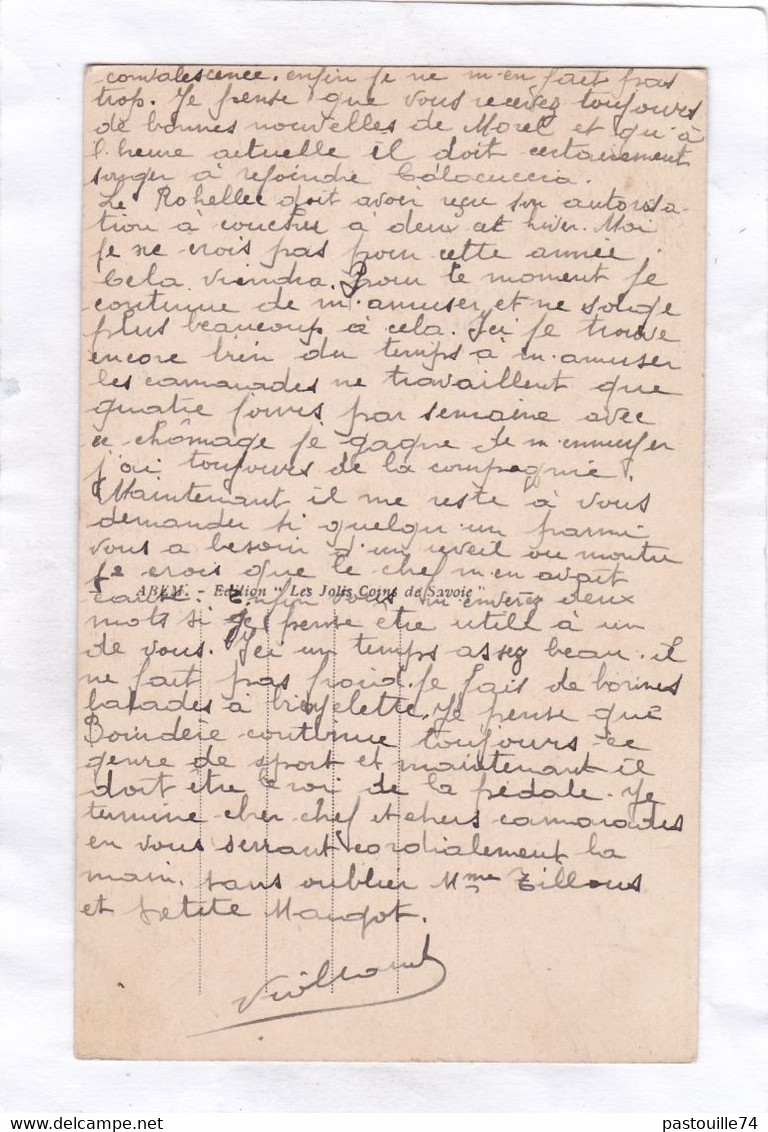 convalescence. enfin je ne m'en fait pas
trop. Je pense que vous recevez toujours
de bonnes nouvelles de Morel et qu'à
l'heure actuelle il doit certainement
songer à rejoindre Calacuccia.
Le Rohellec doit avoir reçu son autorisa-
tion à coucher à deux cet hiver. Moi
je ne crois pas pour cette année.
Cela viendra. Pour le moment je
continue de m'amuser et ne songe
plus beaucoup à cela. Ici je trouve
encore bien du temps à m'amuser
les camarades ne travaillent que
quatre jours par semaine avec
ce chômage je gagne de m'ennuyer
j'ai toujours de la compagnie.
Maintenant il me reste à vous
demander si quelqu'un parmi
vous a besoin d'un reveil ou montre
je crois que le chef m'en avait
ABEM. - Edition "Les Jolis Coins de Savoie"
causé. Enfin vous m'enverez deux
mots si je pense etre utile à un
de vous. Ici un temps assez beau. il
ne fait pas froid. Je fais de bonnes
balades à bicyclette. Je pense que
continue toujours ce
genre de sport et maintenant il
doit être le roi de la pédale. Je
termine cher chef et chers camarades
en vous serrant cordialement la
main. sans oublier Mme Tillous
et petite Margot.
pastouille74